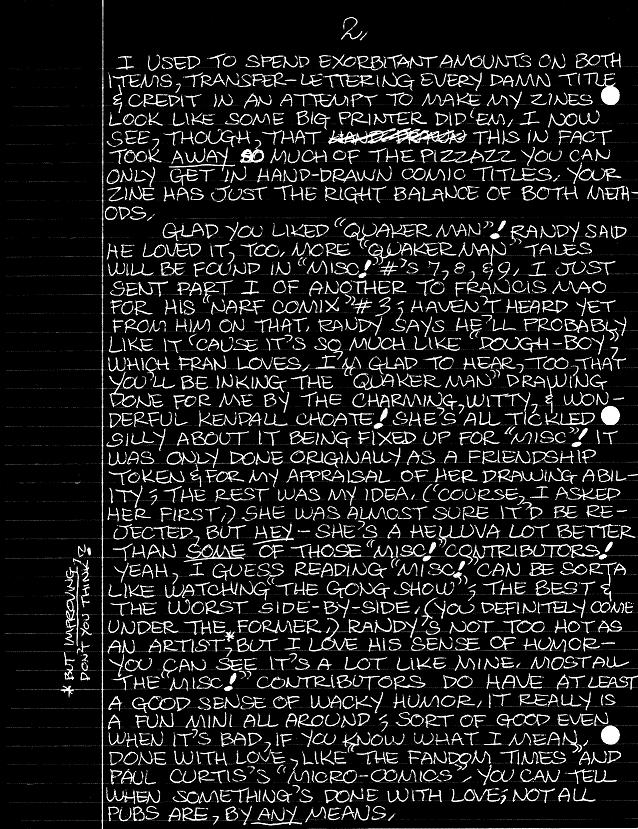 2.
I USED TO SPEND EXORBITANT AMOUNTS ON BOTH
ITEMS, TRANSFER-LETTERING EVERY DAMN TITLE
& CREDIT IN AN ATTEMPT TO MAKE MY ZINES
LOOK LIKE SOME BIG PRINTER DID 'EM. I NOW
SEE, THOUGH, THAT THIS IN FACT
TOOK AWAY SO MUCH OF THE PIZZAZZ YOU CAN
ONLY GET IN HAND-DRAWN COMIC TITLES. YOUR
ZINE HAS JUST THE RIGHT BALANCE OF BOTH METH-
ODS.
GLAD YOU LIKED "QUAKER MAN"! RANDY SAID
HE LOVED IT, TOO. MORE "QUAKER MAN" TALES
WILL BE FOUND IN "MISC! #'S 7, 8, & 9. I JUST
SENT PART I OF ANOTHER TO FRANCIS MAO
FOR HIS "NARF COMIX" #3; HAVEN'T HEARD YET
FROM HIM ON THAT. RANDY SAYS HE'LL PROBABLY
LIKE IT 'CAUSE IT'S SO MUCH LIKE "DOUGH-BOY"
WHICH FRAN LOVES. I'M GLAD TO HEAR, TOO, THAT
YOU'LL BE INKING THE "QUAKER MAN" DRAWING
DONE FOR ME BY THE CHARMING, WITTY, & WON-
DERFUL KENDALL CHOATE! SHE'S ALL TICKLED
SILLY ABOUT IT BEING FIXED UP FOR "MISC"! IT
WAS ONLY DONE ORIGINALLY AS A FRIENDSHIP
TOKEN & FOR MY APPRAISAL OF HER DRAWING ABIL-
ITY; THE REST WAS MY IDEA. ('COURSE, I ASKED
HER FIRST.) SHE WAS ALMOST SURE IT'D BE RE-
JECTED, BUT HEY - SHE'S A HELLUVA LOT BETTER
THAN SOME OF THOSE "MISC!" CONTRIBUTORS!
YEAH, I GUESS READING "MISC!" CAN BE SORTA
LIKE WATCHING "THE GONG SHOW"; THE BEST &
THE WORST SIDE-BY-SIDE. (YOU DEFINITELY COME
UNDER THE FORMER.) RANDY'S NOT TOO HOT AS
AN ARTIST*; BUT I LOVE HIS SENSE OF HUMOR-
YOU CAN SEE IT'S A LOT LIKE MINE. MOST ALL
THE "MISC!" CONTRIBUTORS DO HAVE AT LEAST
A GOOD SENSE OF WACKY HUMOR. IT REALLY IS
A FUN MINI ALL AROUND; SORT OF GOOD EVEN
WHEN IT'S BAD, IF YOU KNOW WHAT I MEAN.
DONE WITH LOVE, LIKE "THE FANDOM TIMES" AND
PAUL CURTIS'S "MICRO-COMICS". YOU CAN TELL
WHEN SOMETHING'S DONE WITH LOVE; NOT ALL
PUBS ARE, BY ANY MEANS.
* BUT IMPROVING,
DON'T YOU THINK?